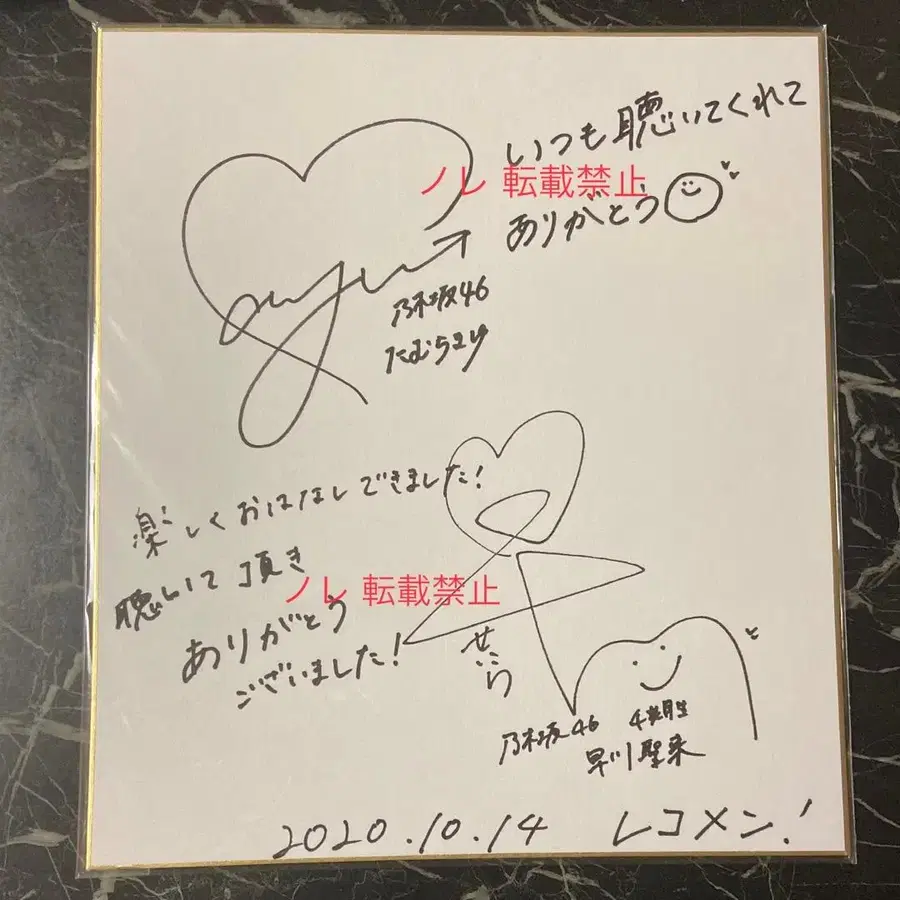 いつも聴いてくれて
ありがとう
ノレ 転載禁止
乃木坂46
たむらまゆ
楽しくおはなしできました!
聴いて頂き
ありがとう
ございました!
ノレ 転載禁止
せいら
乃木坂46 4期生
早川聖来
2020.10.14 レコメン!